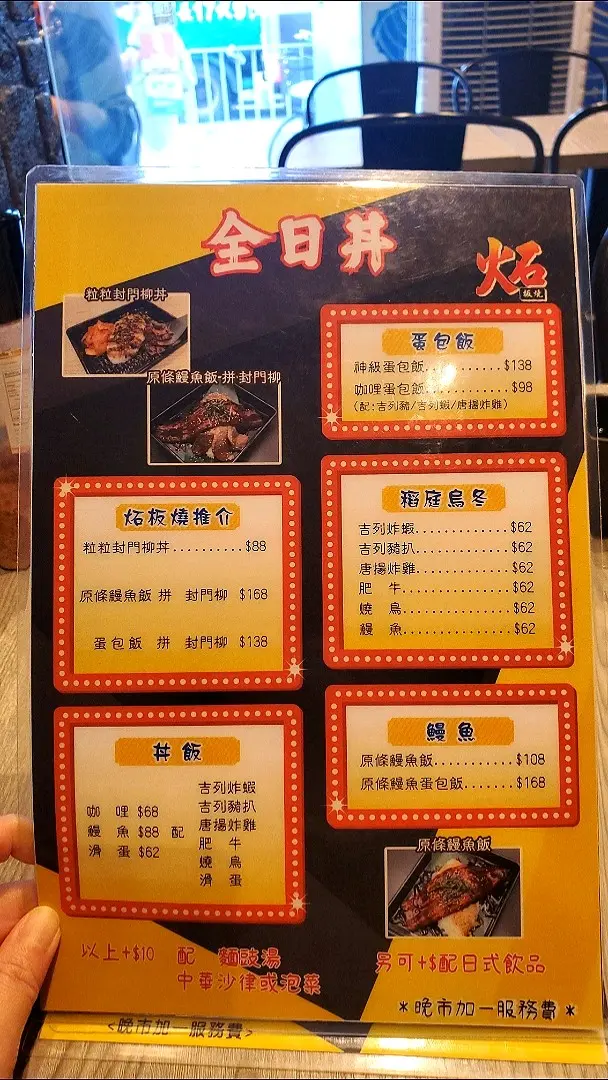 全日丼
炻
板燒
粒粒封門柳丼
原條鰻魚飯-拼-封門柳
蛋包飯
神級蛋包飯..........$138
咖哩蛋包飯..........$98
(配:吉列豬/吉列蝦/唐揚炸雞)
炻板燒推介
粒粒封門柳丼..........$88
原條鰻魚飯 拼 封門柳 $168
蛋包飯 拼 封門柳 $138
稻庭烏冬
吉列炸蝦.............$62
吉列豬扒.............$62
唐揚炸雞.............$62
肥 牛...............$62
燒 鳥...............$62
鰻 魚...............$62
丼飯
咖 哩 $68
鰻 魚 $88 配
滑 蛋 $62
吉列炸蝦
吉列豬扒
唐揚炸雞
肥 牛
燒 鳥
滑 蛋
鰻魚
原條鰻魚飯...........$108
原條鰻魚蛋包飯.......$168
原條鰻魚飯
以上+$10 配 麵豉湯
中華沙律或泡菜
另可+$配日式飲品
*晚市加一服務費*
<晚市加一服務費>